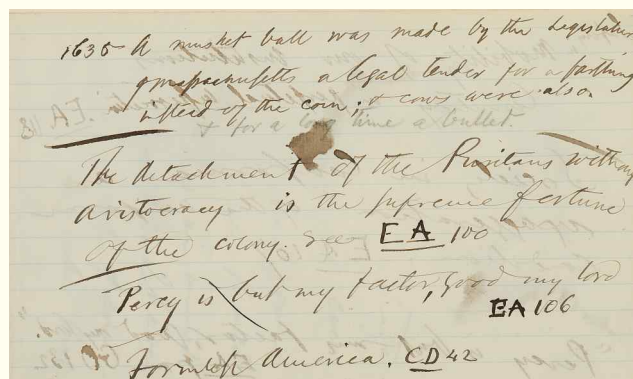 1635 A musket ball was made by the Legislature
of Massachusetts a legal tender for a farthing
instead of the coin; & cows were also
& for a long time a bullet.
The detachment of the Puritans without
aristocracy is the supreme fortune
of the colony. See EA 100
Percy is but my factor, good my lord
EA 106
Formless America. CD 42